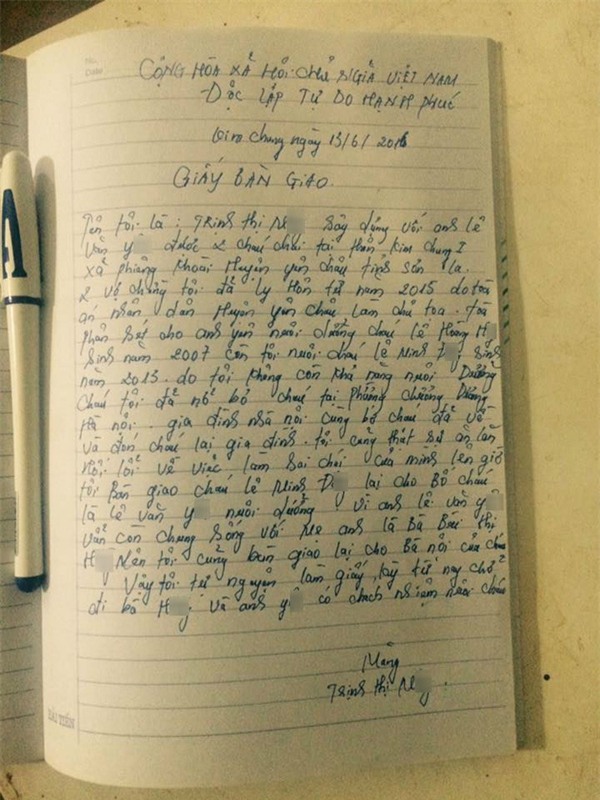 No.
Date
CỘNG HÒA XÃ HỘI CHỦ NGHĨA VIỆT NAM
ĐỘC LẬP TỰ DO HẠNH PHÚC
Kim chung ngày 13/6/2016
GIẤY BÀN GIAO.
Tên tôi là: Trịnh thị N sây dựng với anh lê
văn y được 2 cháu chái tại thôn kim chung I
xã phiêng khoài Huyện yên châu tỉnh sơn la.
2 vợ chồng tôi đã ly Hôn từ năm 2015 do tòa
án nhân dân Huyện yên châu làm chủ tọa. tòa
phán sét cho anh yên nuôi dưỡng cháu lê Hoàng H
sinh năm 2007 còn tôi nuôi cháu lê Minh sinh
năm 2013. do tôi không còn khả năng nuôi Dưỡng
cháu tôi đã bỏ cháu tại Phùng chưởng
Hà nội. gia đình nhà nội cùng bố cháu đã về
và đón cháu lại gia đình. tôi cũng thật sự ăn lăn
hối lỗi về việc làm sai chái của mình lên giờ
tôi Bàn giao cháu lê Minh Đ lại cho Bố cháu
là lê văn y nuôi dưỡng vì anh lê văn y
vẫn còn chung sống với Mẹ anh là Bà Bùi thị
H Nên tôi cũng bàn giao lại cho Bà nội của cháu
Vậy tôi tự nguyện làm giấy, kỳ từ nay chở
đi bà H và anh y có chách nhiệm nuôi cháu
Trịnh thị N
HẢI TIẾN